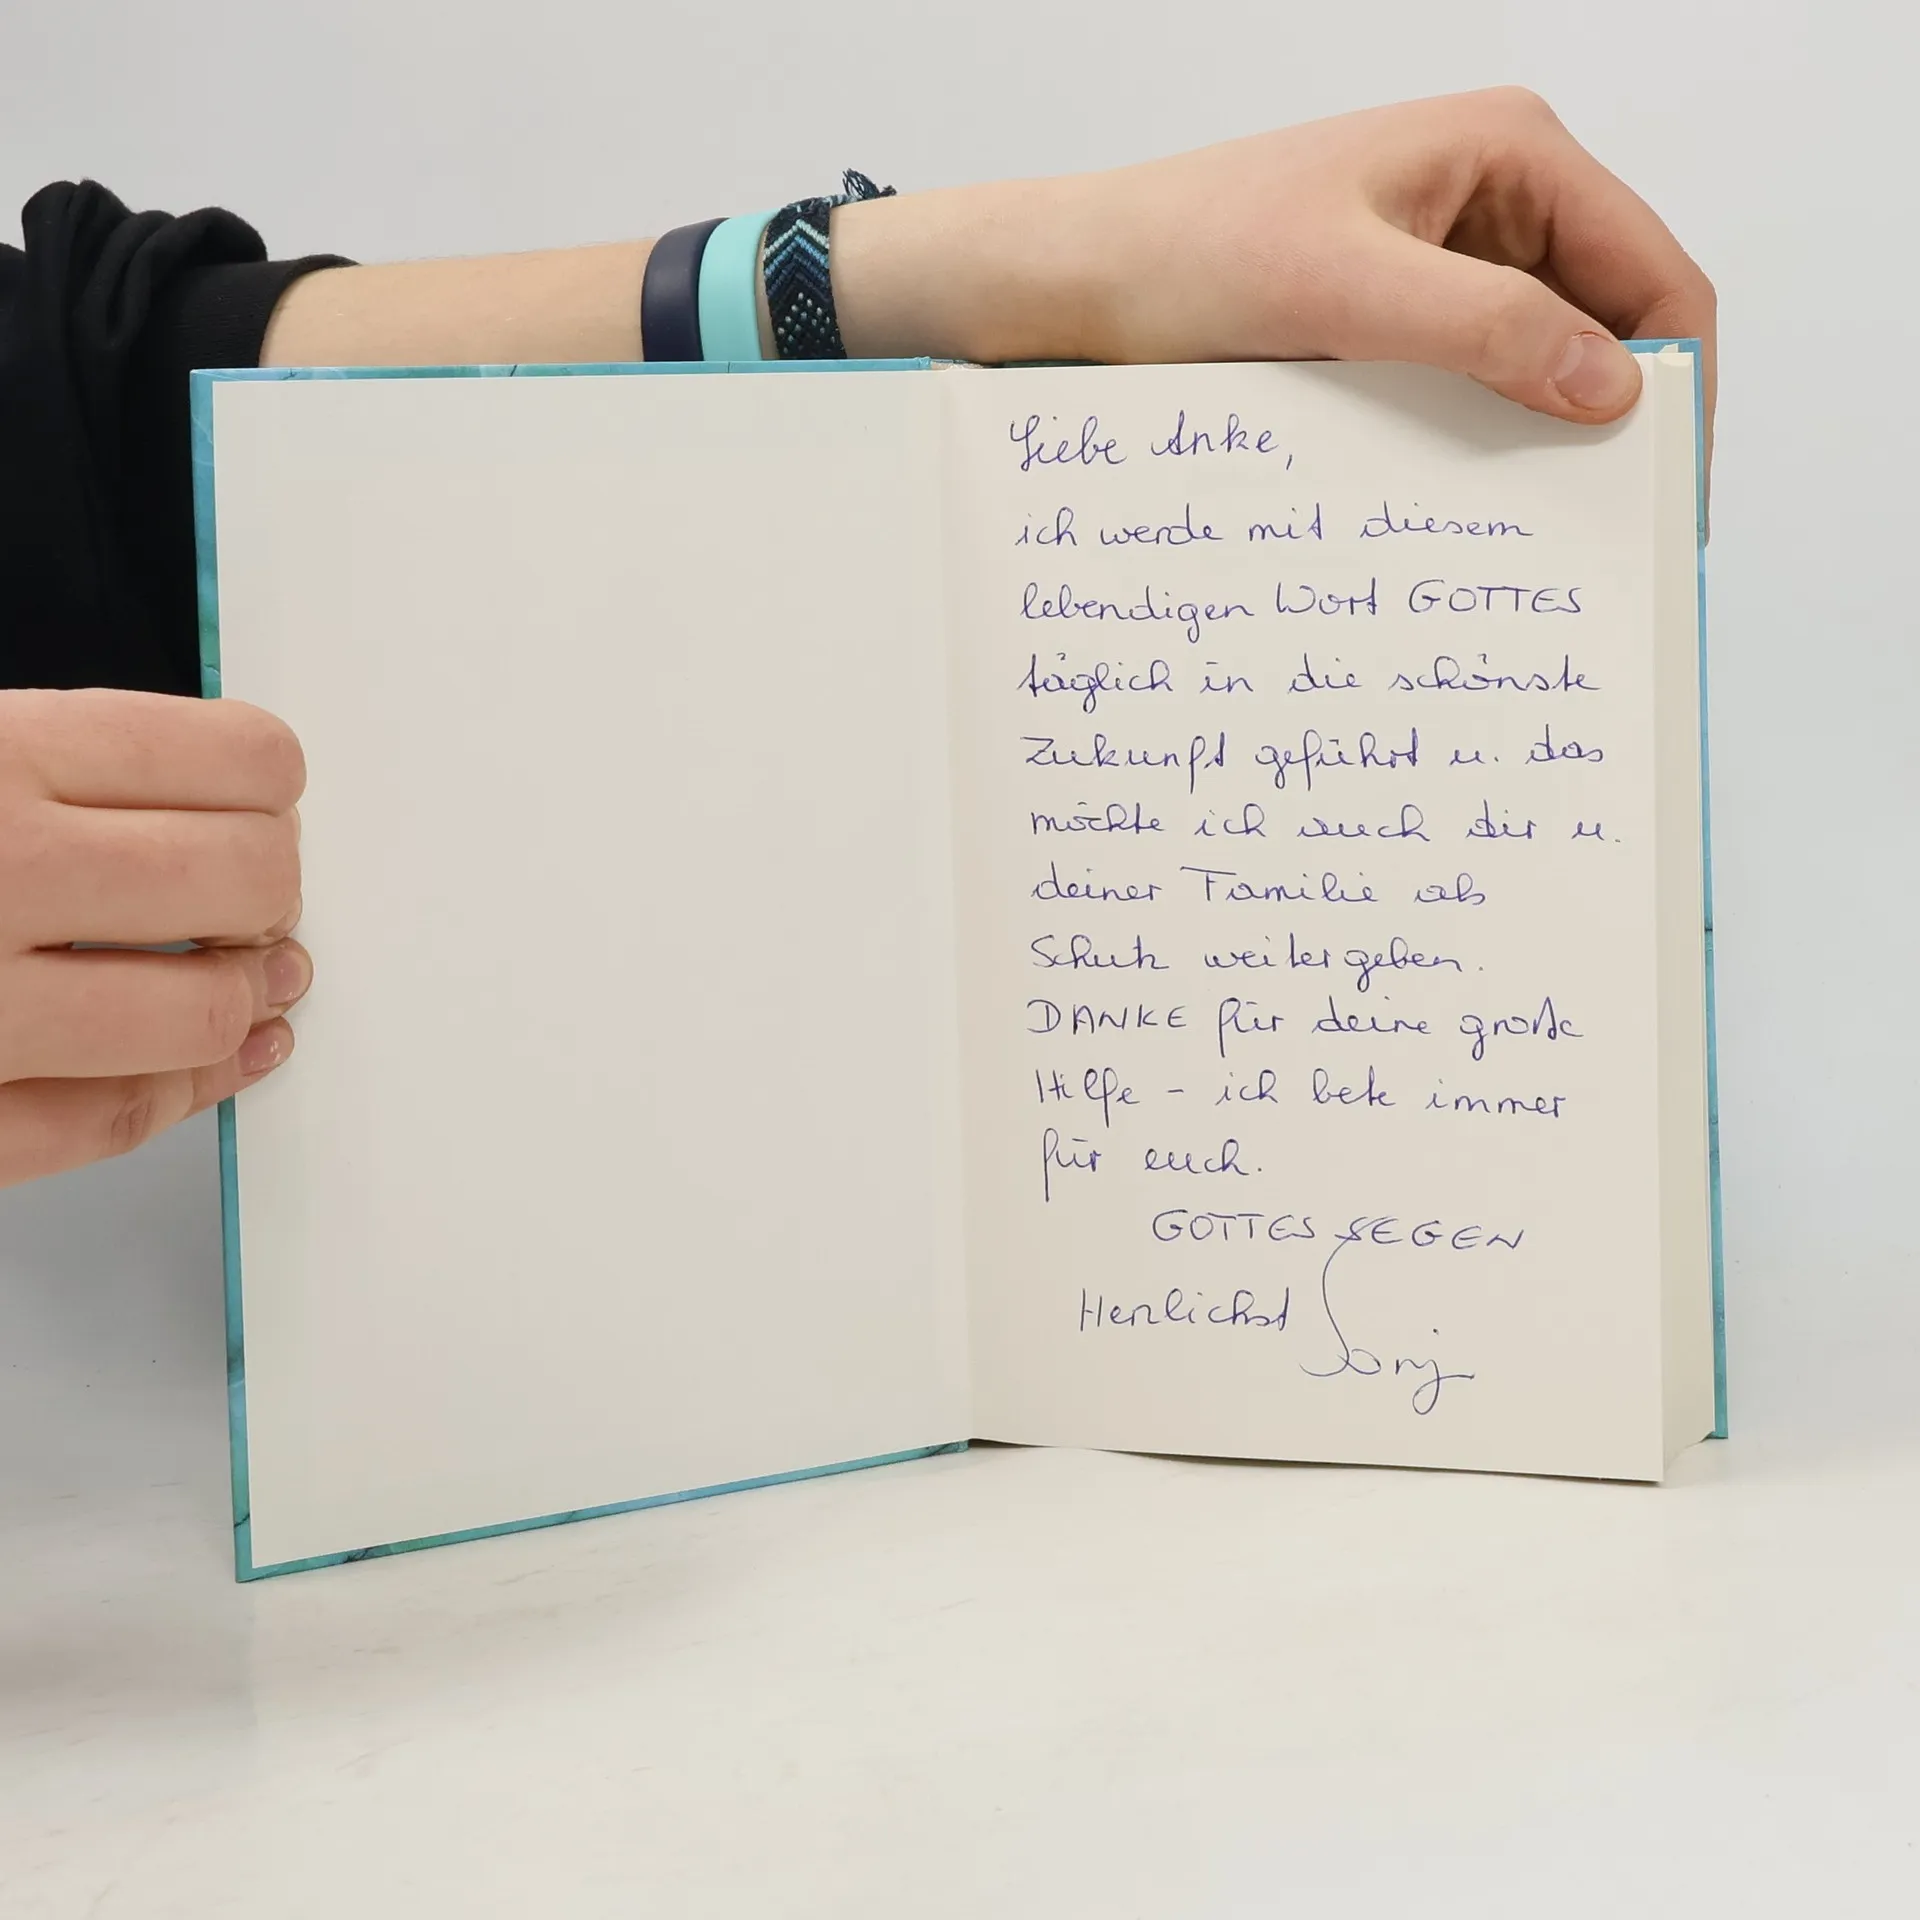 Liebe Anke,
ich werde mit diesem
lebendigen Wort GOTTES
täglich in die schönste
Zukunft geführt u. das
möchte ich auch dir u.
deiner Familie als
Schutz weitergeben.
DANKE für deine große
Hilfe - ich bete immer
für euch.
GOTTES SEGEN
Herzlichst